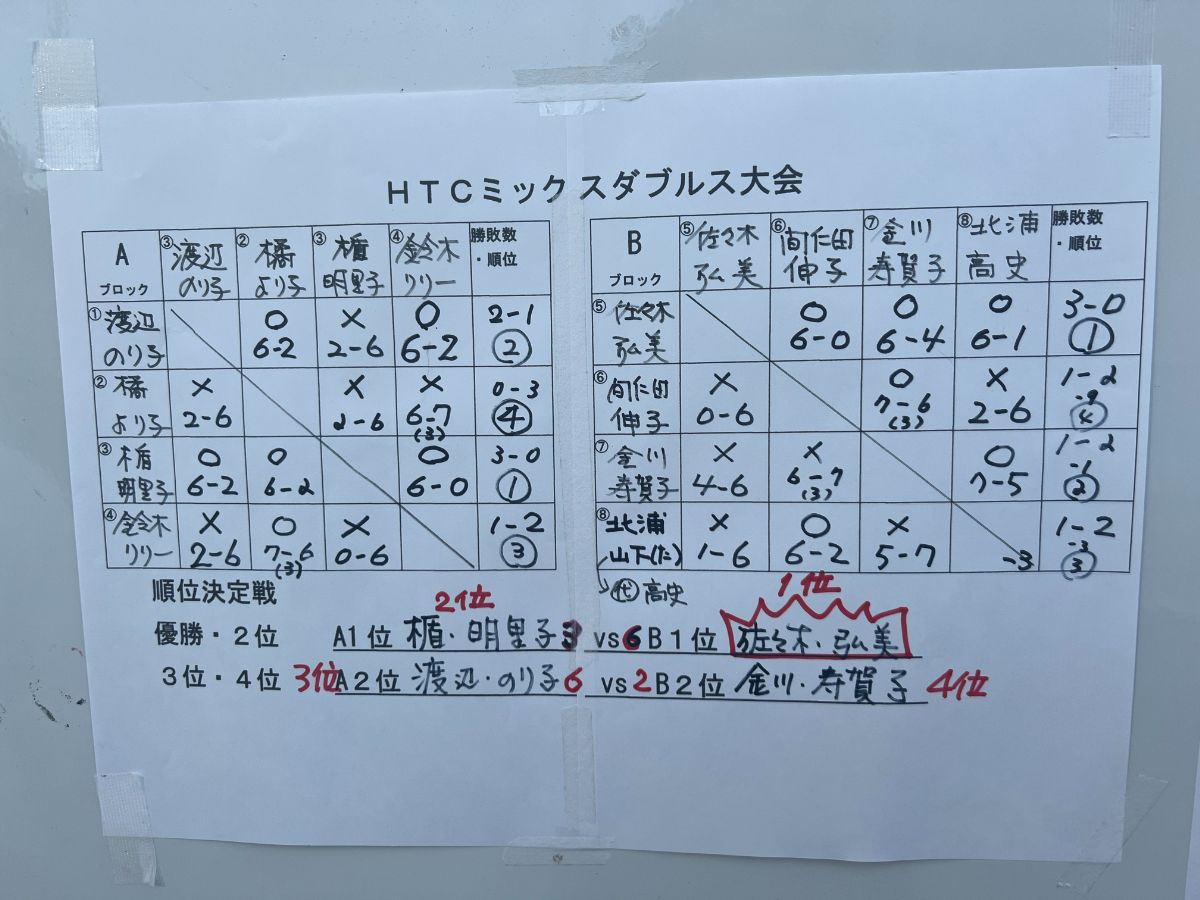 HTCミックスダブルス大会
A ブロック ③渡辺 のり子 ②橘 より子 ③楯 明里子 ④鈴木 リリー 勝敗数・順位
①渡辺 のり子 ○ 6-2 × 2-6 ○ 6-2 2-1 ②
②橘 より子 × 2-6 × 2-6 × 6-7(3) 0-3 ④
③楯 明里子 ○ 6-2 ○ 6-2 ○ 6-0 3-0 ①
④鈴木 リリー × 2-6 ○ 7-6(3) × 0-6 1-2 ③
B ブロック ⑤佐々木 弘美 ⑥ 伸子 ⑦金川 寿賀子 ⑧北浦 高史 勝敗数・順位
⑤佐々木 弘美 ○ 6-0 ○ 6-4 ○ 6-1 3-0 ①
⑥ 伸子 × 0-6 ○ 7-6(3) × 2-6 1-2
⑦金川 寿賀子 × 4-6 × 6-7(3) ○ 7-5 1-2 -1 ②
⑧北浦 山下(た) × 1-6 ○ 6-2 × 5-7 -3 1-2 -3 ③
㈹高史
順位決定戦
2位 1位
優勝・2位 A1位 楯・明里子 3 vs 6 B1位 佐々木・弘美
3位・4位 3位 A2位 渡辺・のり子 6 vs 2 B2位 金川・寿賀子 4位